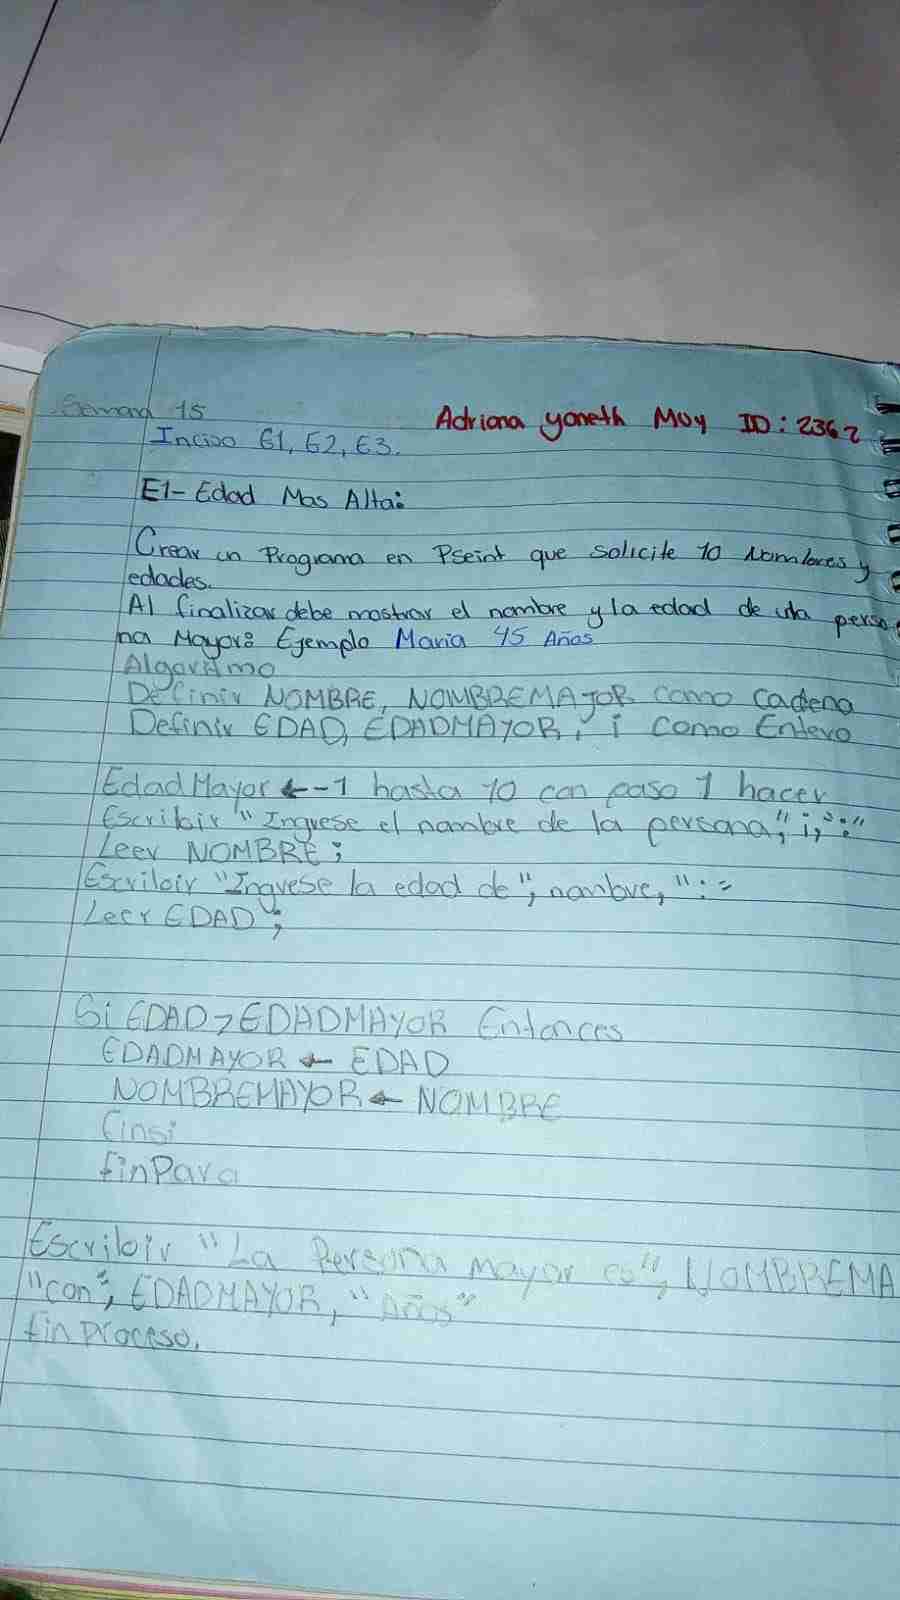 Semana 15
Adriana yoneth Muy ID: 2362
Inciso E1, E2, E3.
E1- Edad Mas Alta:
Crear un Programa en PSeint que solicite 10 Nombres y
edades.
Al finalizar debe mostrar el nombre y la edad de una perso
na Mayor: Ejemplo Maria 45 Años
Algoritmo
Definir NOMBRE, NOMBREMAJOR como cadena
Definir EDAD, EDADMAYOR, i como Entero
EdadMayor ← -1 hasta 10 con paso 1 hacer
Escribir "Ingrese el nombre de la persona", i, ":"
Leer NOMBRE;
Escribir "Ingrese la edad de", nombre, ":=
Leer EDAD;
Si EDAD > EDADMAYOR Entonces
EDADMAYOR ← EDAD
NOMBREMAYOR ← NOMBRE
finsi
finPara
Escribir "La Persona mayor es", NOMBREMA
"con", EDADMAYOR, "Años"
fin proceso.